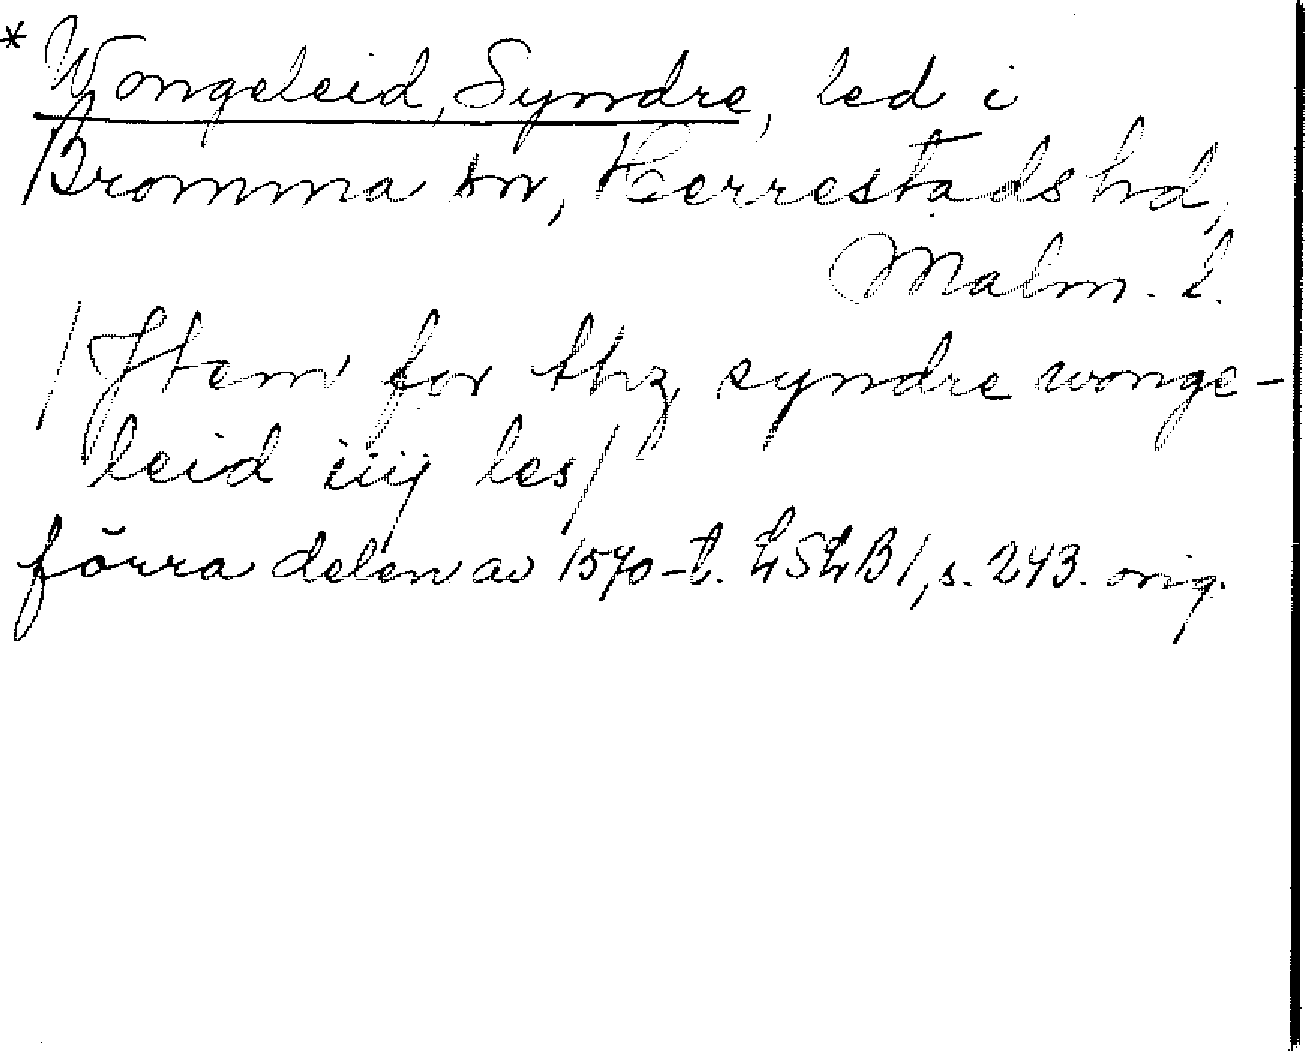 * Wongeleid, Syndre, led i
Bromma sn, Herrestads hd,
Malm. l.
/Jtem for thz syndre wonge-
leid iiij les/
förra delen av 1570-t. LSLB 1, s. 243. orig.